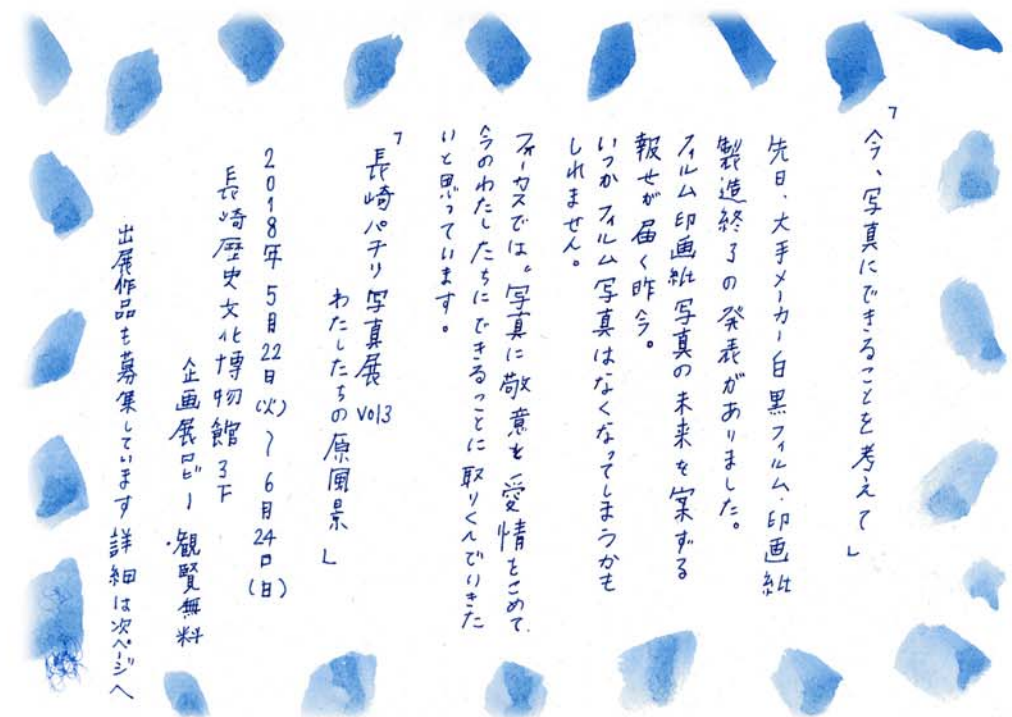 「今、写真にできることを考えて」
先日、大手メーカー白黒フィルム・印画紙
製造終了の発表がありました。
フィルム印画紙写真の未来を案ずる
報せが届く昨今。
いつかフィルム写真はなくなってしまうかも
しれません。
フォーカスでは、写真に敬意を愛情をこめて、
今のわたしたちにできることに取りくんでいきた
いと思っています。
「長崎パチリ写真展 vol3
わたしたちの原風景」
2018年5月22日(火)〜6月24日(日)
長崎歴史文化博物館3F
企画展ロビー ・観覧無料
出展作品も募集しています 詳細は次ページへ